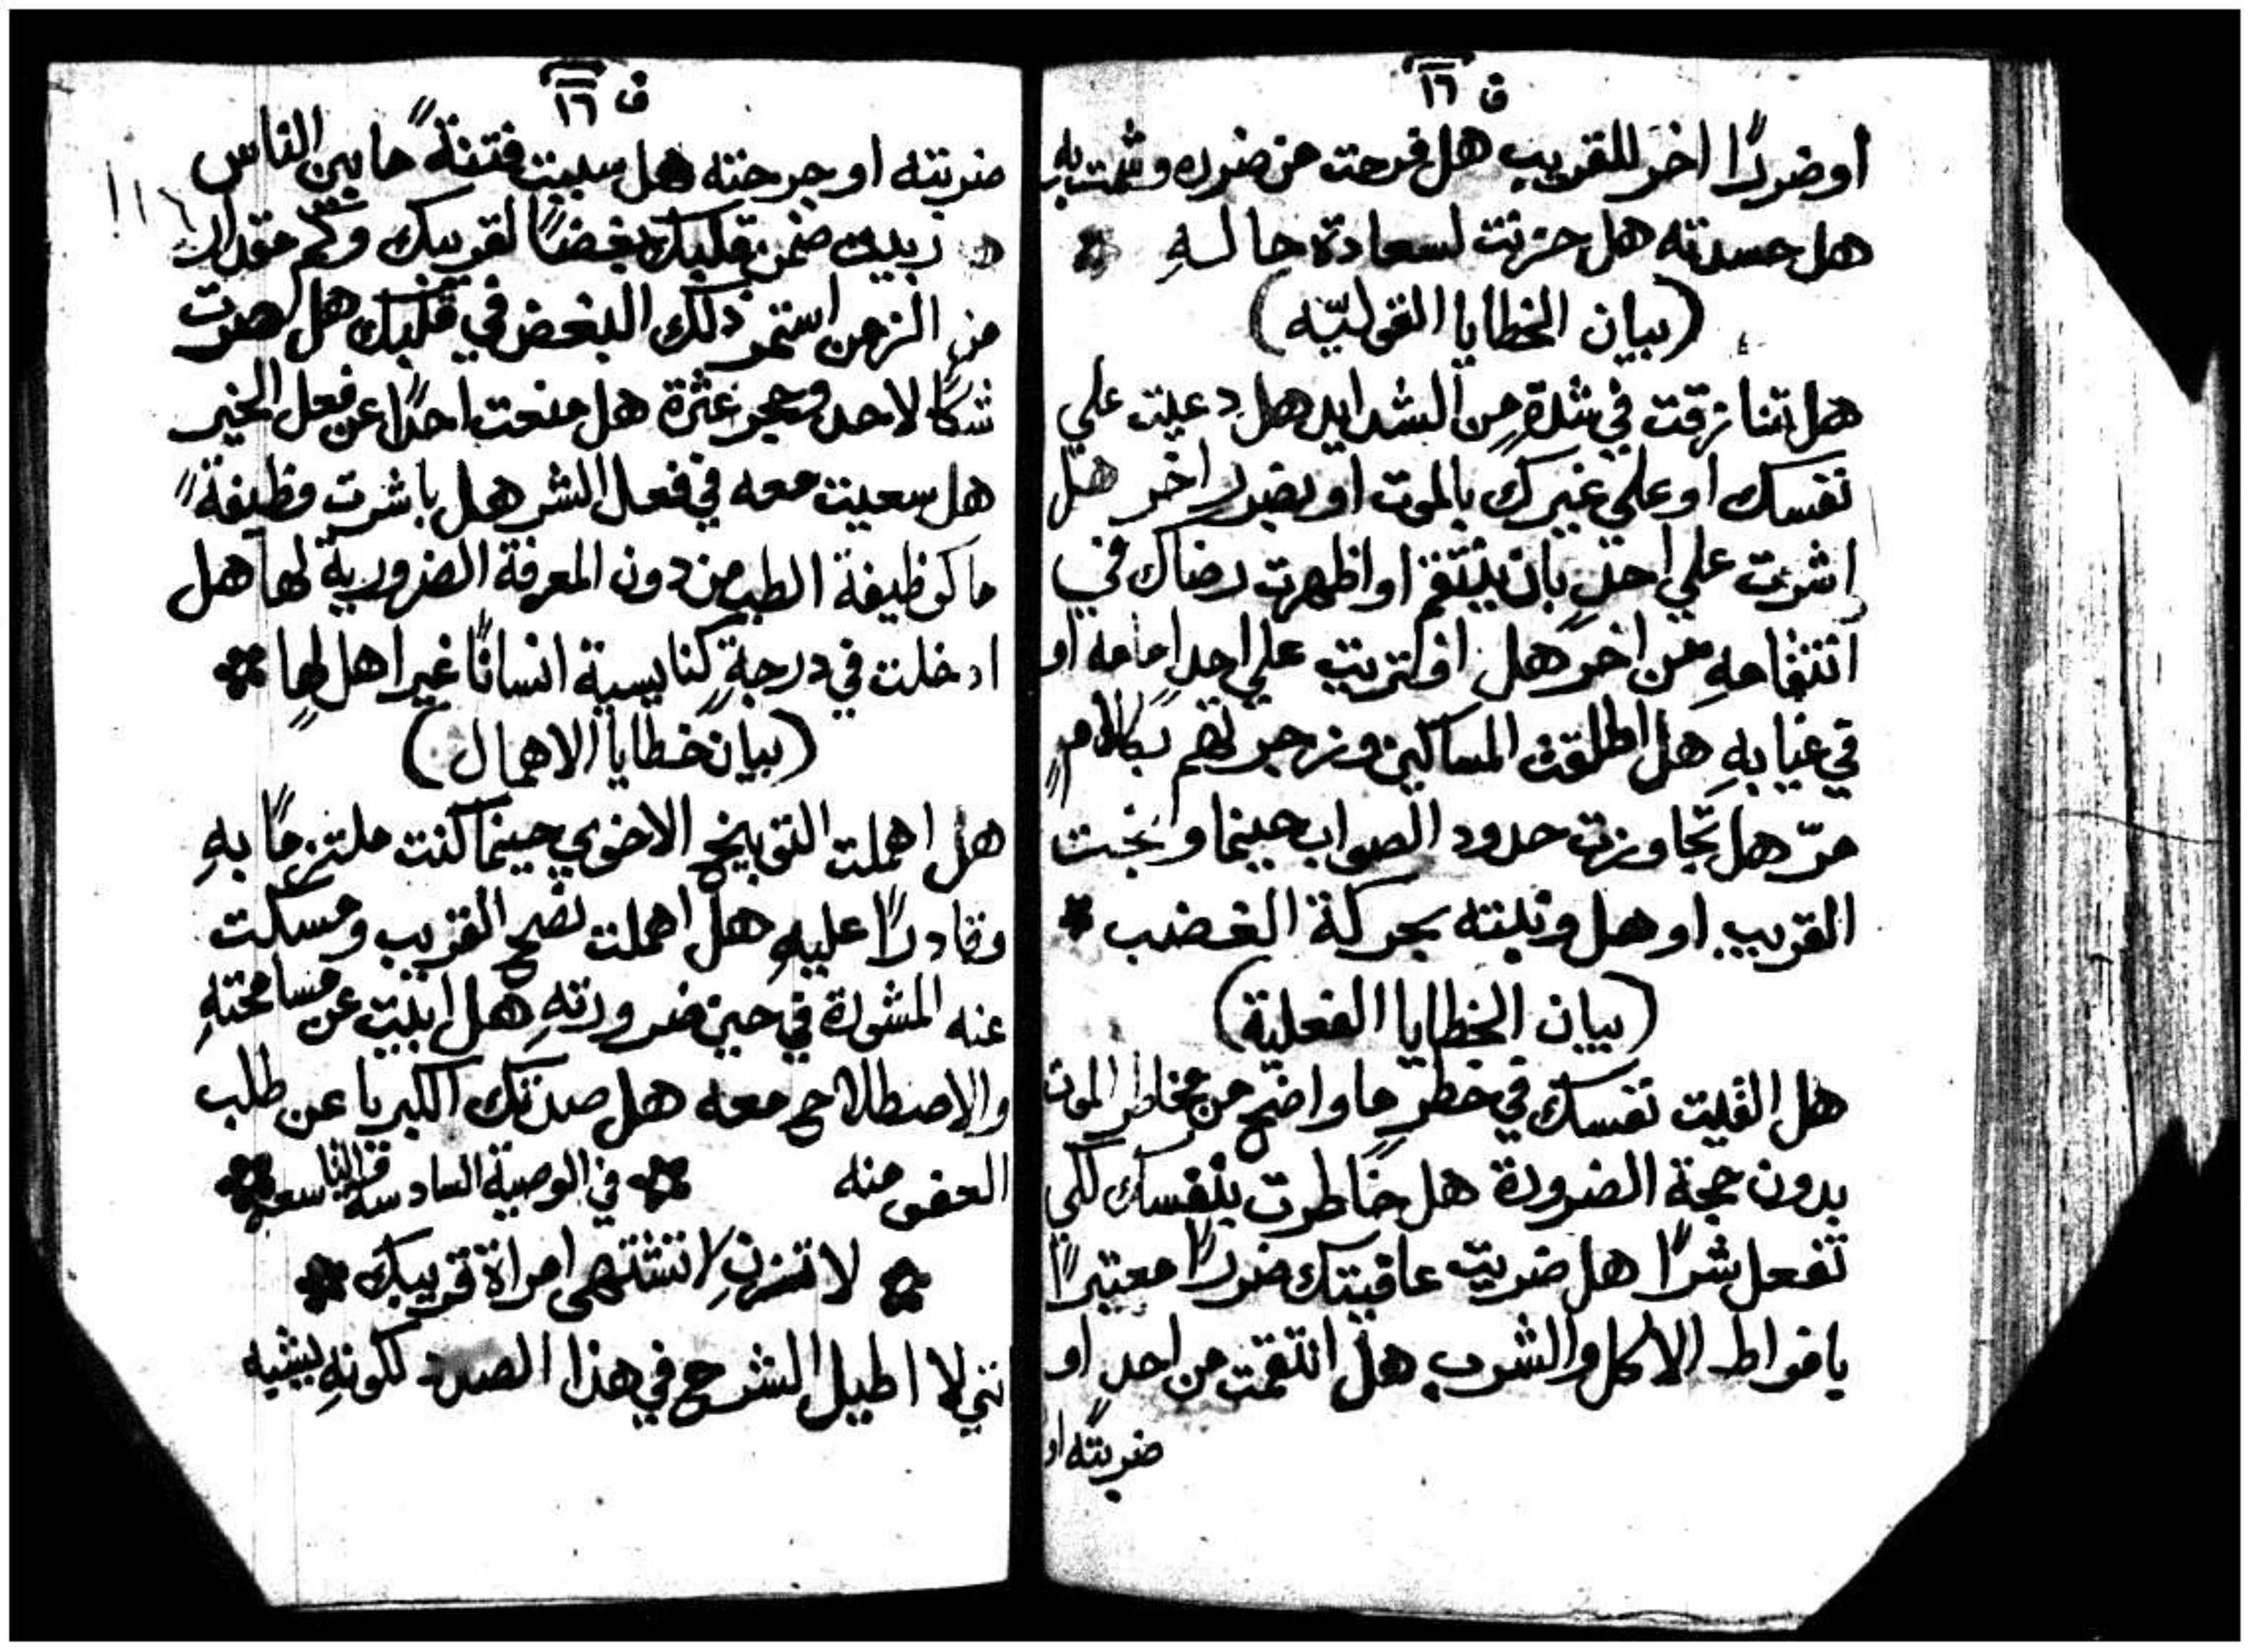 ق ١٦
أو ضررًا اخر للقريب هل فرحت من ضرره وشمت به
هل حسدته هل حزنت لسعادة حاله
(بيان الخطايا القوليّه)
هل تنازقت في شدةٍ من الشدايد هل دعيت علي
نفسك او علي غيرك بالموت او بضرر اخر هل
اشرت علي احدٍ بان ينتقم او اظهرت رضاك في
انتقامهِ من اخر هل افتريت علي احدٍ امامه او
في غيابهِ هل اطلقت المساكين وزجرتهم بكلامٍ
مرّ هل تجاوزت حدود الصواب حينما وبخت
القريب او هل وبنته بحركة الغضب
(بيان الخطايا الفعلية)
هل القيت نفسك في خطرٍ ما واضح من مخاطر الموت
بدون حجة الضرورة هل خاطرت بنفسك لكي
تفعل شرًا هل ضريت عافيتك ضررًا معتبرًا
بافراط الاكل والشرب هل انتقمت من احدٍ او
ضربته او
ق ١٦
ضربته او جرحته هل سببت فتنةً ما بين الناس
هل ربيت ضمن قلبك بغضًا لقريبك وكم مقدار
من الزمن استمر ذلك البغض في قلبك هل صرت
شكًا لاحد وحجر عثرة هل منعت احدًا عن فعل الخير
هل سعيت معه في فعل الشر هل باشرت وظيفةً
ما كوظيفة الطب من دون المعرفة الضرورية لها هل
ادخلت في درجةٍ كنايسية انسانًا غير اهل لها
(بيان خطايا الاهمال)
هل اهملت التوبيخ الاخوي حينما كنت ملتزمًا بهِ
وقادرًا عليهِ هل اهملت نصح القريب ومسكت
عنه المشورة في حين ضرورتهِ هل ابيت عن مسامحتهِ
والاصطلاح معه هل صدتك الكبريا عن طلب
العفو منه في الوصية السادسة والتاسعه
لا تزنِ لا تشتهي امراة قريبك
انني لا اطيل الشرح في هذا الصدد لكونهِ بيشيه